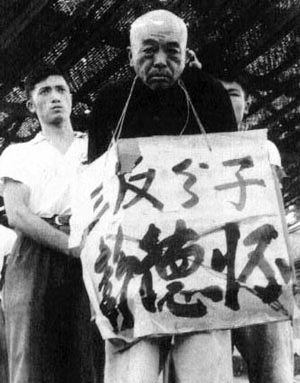 三反分子
彭德怀